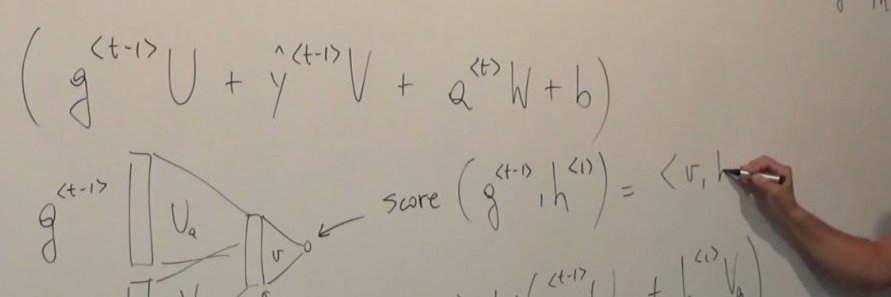 ( g^{<t-1>} U + ŷ^{<t-1>} V + a^{<t>} W + b )
g^{<t-1>} U_a v
score ( g^{<t-1>}, h^{<i>} ) = < v, h
^{<t-1>} + h^{<i>} V_a )